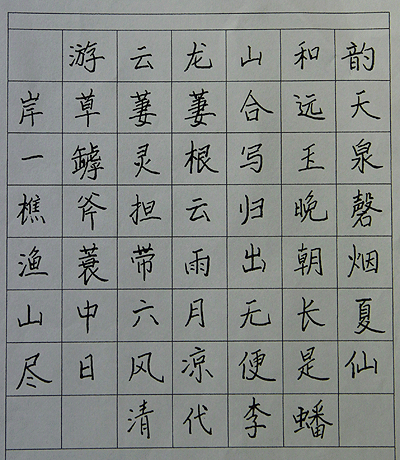 游云龙山和韵
岸草萋萋合远天
一罅灵根写玉泉
樵斧担云归晚磬
渔蓑带雨出朝烟
山中六月无长夏
尽日风凉便是仙
清代李蟠